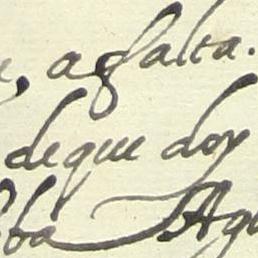 , afalta.
deque doy
ba Agu